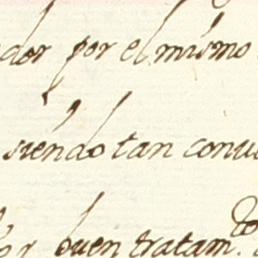 dor por el mismo
siendo tan conu
por buen tratam.to